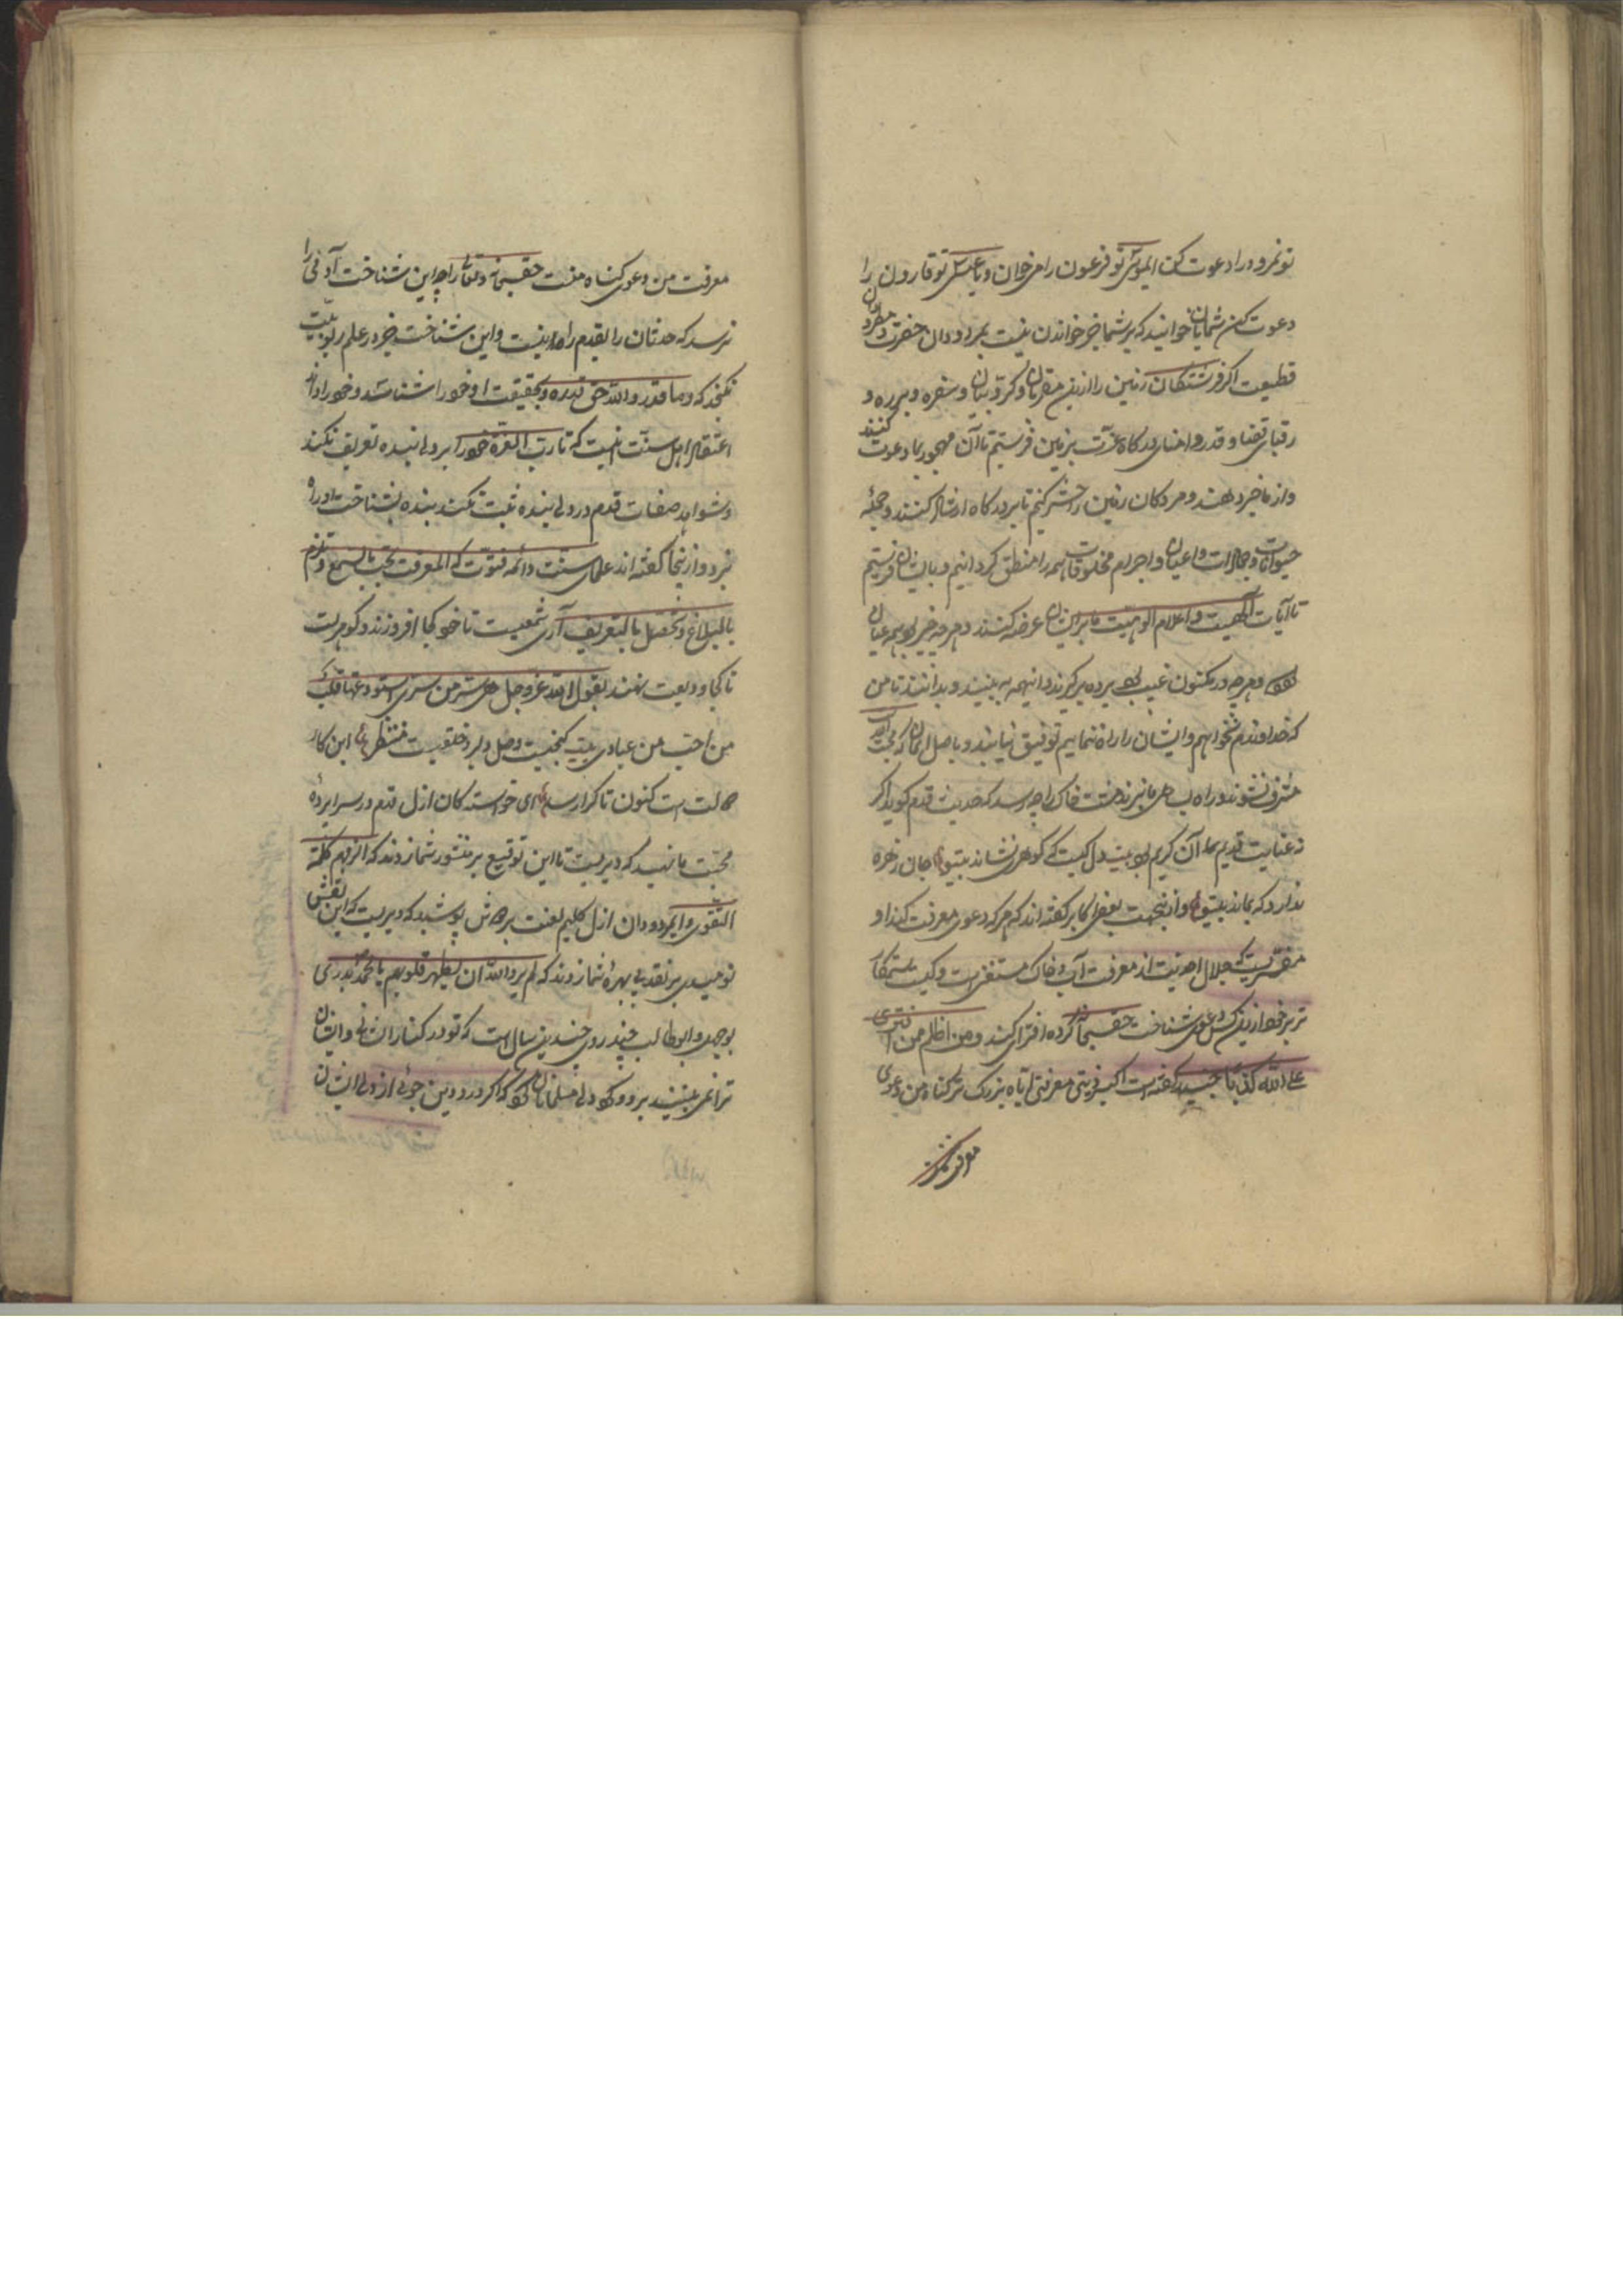 تو نمرود را دعوت کن ای موسی تو فرعون را می خوان و یا عیسی تو قارون را
دعوت کن شمایان خوانید که بر شما جز خواندن نیست مردودان حضرت و مطرودان
قطیعت اگر فرشتگان زمین را از مقربان و کروبیان و سفره و برره و
رقبای قضا و قدر و امنای درگاه عزت بزمین فرستیم تا آن مهجور بما دعوت کنند
و از ما خبر دهند و مردگان زمین را حشر کنیم تا بر درگاه کنند و جمله
حیوانات و جمادات و اعیان و اجرام مخلوقات همه را منطق گردانیم و بایشان فرستیم
تا آیات الهیت و اعلام الوهیت ما بر ایشان عرضه کنند و هر چه خبر بود همه عیان
شود و هر چه در مکنون غیب بود پرده برگیرند و اینهمه به بینند و بدانند تا من
که خداوندم نخواهم و ایشان را راه ننمایم توفیق نیابند و باصل ایمان که محبت است
مشرف نشوند و راه بما نبرند مشت خاک را چه رسد که حدیث قدم گوید اگر
نه عنایت قدیم آن کریم بود بیت دل کیست که گوهری نشاند بیتو جان زهره
ندارد که بماند بیتو و از ینجهت بعضی اکابر گفته اند که هر که دعوی معرفت کند او
مفتریست که جلال احدیت از معرفت آب و خاک مستغنی است و کیست ستمکار
تر بر خود از ین کس دعوی شناخت حقسبحانه کرده افترا کند و من اظلم ممن افتری
علی الله کذبا جنید گفته است اکبر ذنبی معرفتی ایاه بزرگ تر گناه من دعوی
معرفت من
معرفت من دعوی گناه منست حقسبحانه و تعالی را چه این شناخت آدمی را
نرسد که حدثان را بقدم راه نیست و این شناخت جز در علم ربوبیت
نگنجد که و ما قدروا الله حق قدره و بحقیقت او خود را شناسد و خود را داند
اعتقاد اهل سنت اینست که تا رب العزة خود را بر دل بنده تعریف نکند
و شواهد صفات قدم در دل بنده ثبت نکند بنده بشناخت او راه
نبرد و از ینجا گفته اند علمای سنت و ائمه فتوت که المعرفت تجب بالسمع و تلزم
بالبلاغ و تحصل بالتعریف آری شمعیست تا خود کجا افروزند و گوهریست
تا کجا ودیعت نهند یقول الله عز و جل سر من سری استودعتها قلب
من احب من عبادی بیت گنجیست وصل دلبر و خلقیست منتظر این کار
دولت است کنون تا کرا رسد ای خواستگان ازل قدم در سراپرده
محبت ما نهید که دیریست تا این توقیع بر منشور شما زدند که الزمهم کلمة
التقوی و ای مردودان ازل گلیم لعنت بر دوش پوشید که دیریست که این نقش
نومیدی بر نقد بی بهره شما زدند که لم یرد الله ان یطهر قلوبهم یا محمد بدر
بوجهل و ابوطالب چند روی چندین سال است که تو در کنار ایشانی و ایشان
ترا نمی بینند برو و بگو دل مسلمانان گو که اگر درد دین جوئی از دل ایشان